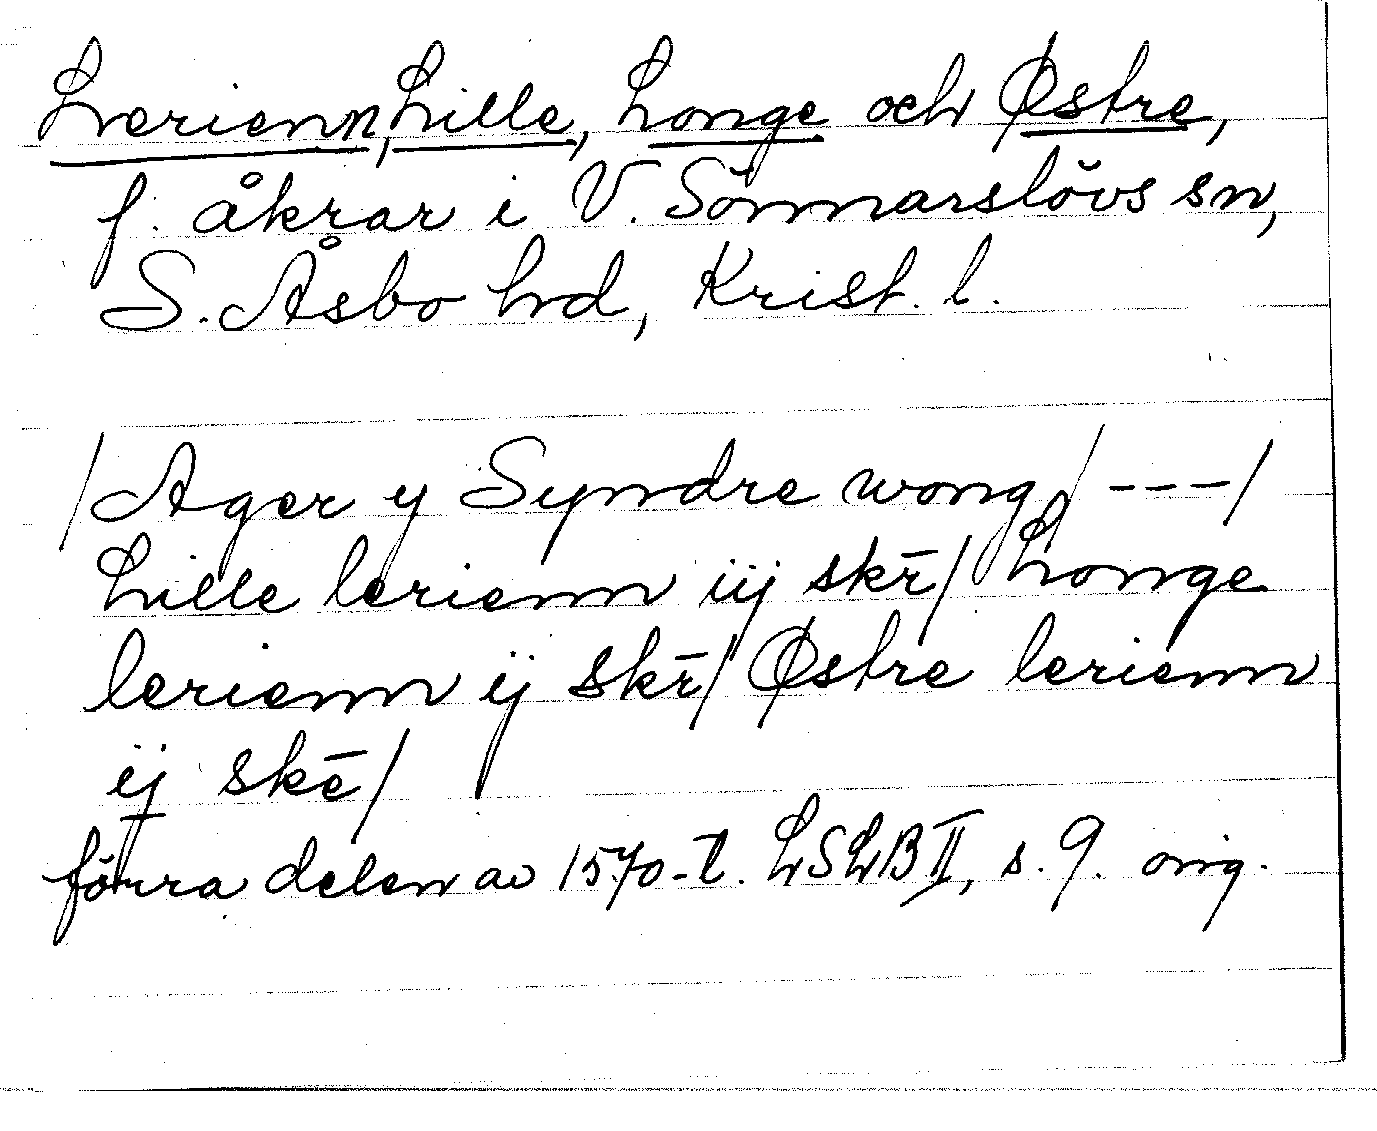 Lerienn, Lille, Longe och Østre,
f. åkrar i V. Sönnarslövs sn,
S. Åsbo hrd, Krist. l.
/Ager y Syndre wong/---/
Lille lerienn iij skē/ Longe
lerienn ij skē/ Østre lerienn
ij skē/
förra delen av 1570-t. LSLB II, s. 9. orig.